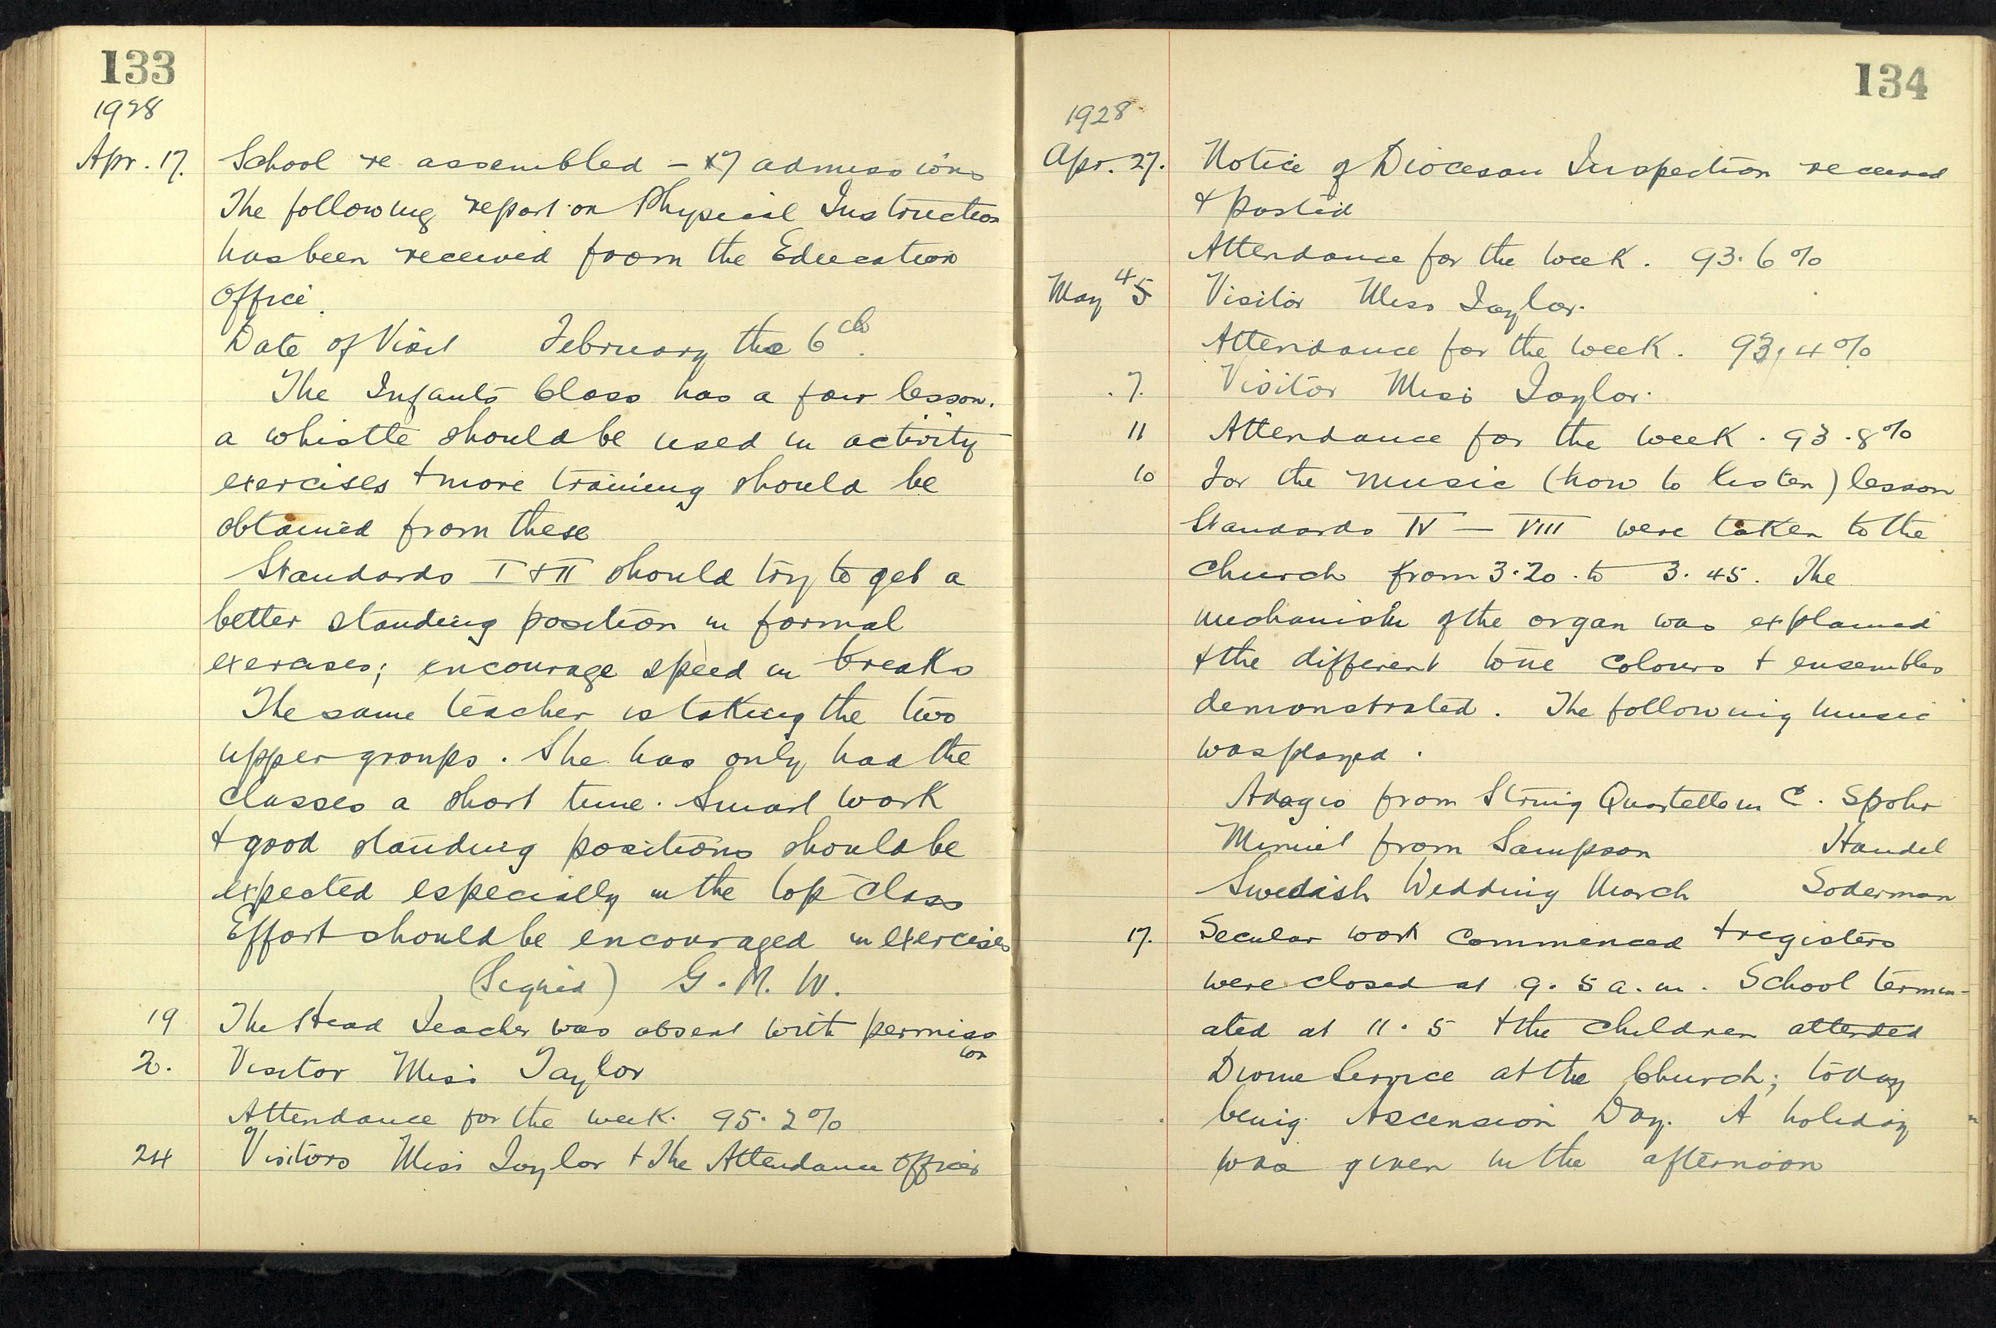 133
1928
Apr. 17. School re assembled – 7 admissions
The following report on Physical Instruction
has been received from the Education
Office.
Date of Visit February the 6th.
The Infants Class has a fair lesson.
a whistle should be used in activity
exercises + more training should be
obtained from these
Standards I + II should try to get a
better standing position in formal
exercises; encourage speed in breaks
The same teacher is taking the two
upper groups. She has only had the
classes a short time. Smart work
+ good standing positions should be
expected especially in the top class
Effort should be encouraged in exercises
(Signed) G. M. W.
19 The Head Teacher was absent with permiss
ion
20. Visitor Miss Taylor
Attendance for the week. 95.2%
24 Visitors Miss Taylor + The Attendance Officer
134
1928
Apr. 27. Notice of Diocesan Inspection received
+ posted
Attendance for the week. 93.6%
May 4 5 Visitor Miss Taylor.
Attendance for the week. 93.4%
7. Visitor Miss Taylor.
11 Attendance for the week. 93.8%
10 For the Music (how to listen) lesson
Standards IV – VIII were taken to the
Church from 3.20. to 3.45. The
mechanism of the organ was explained
+ the different tone colours + ensembles
demonstrated. The following music
was played.
Adagio from String Quartette in C. Spohr
Minuet from Sampson Handel
Swedish Wedding March Soderman
17. Secular work commenced + registers
were closed at 9.5 a.m. School termin-
ated at 11.5 + the children attended
Divine Service at the Church; today
being Ascension Day. A holiday
was given in the afternoon